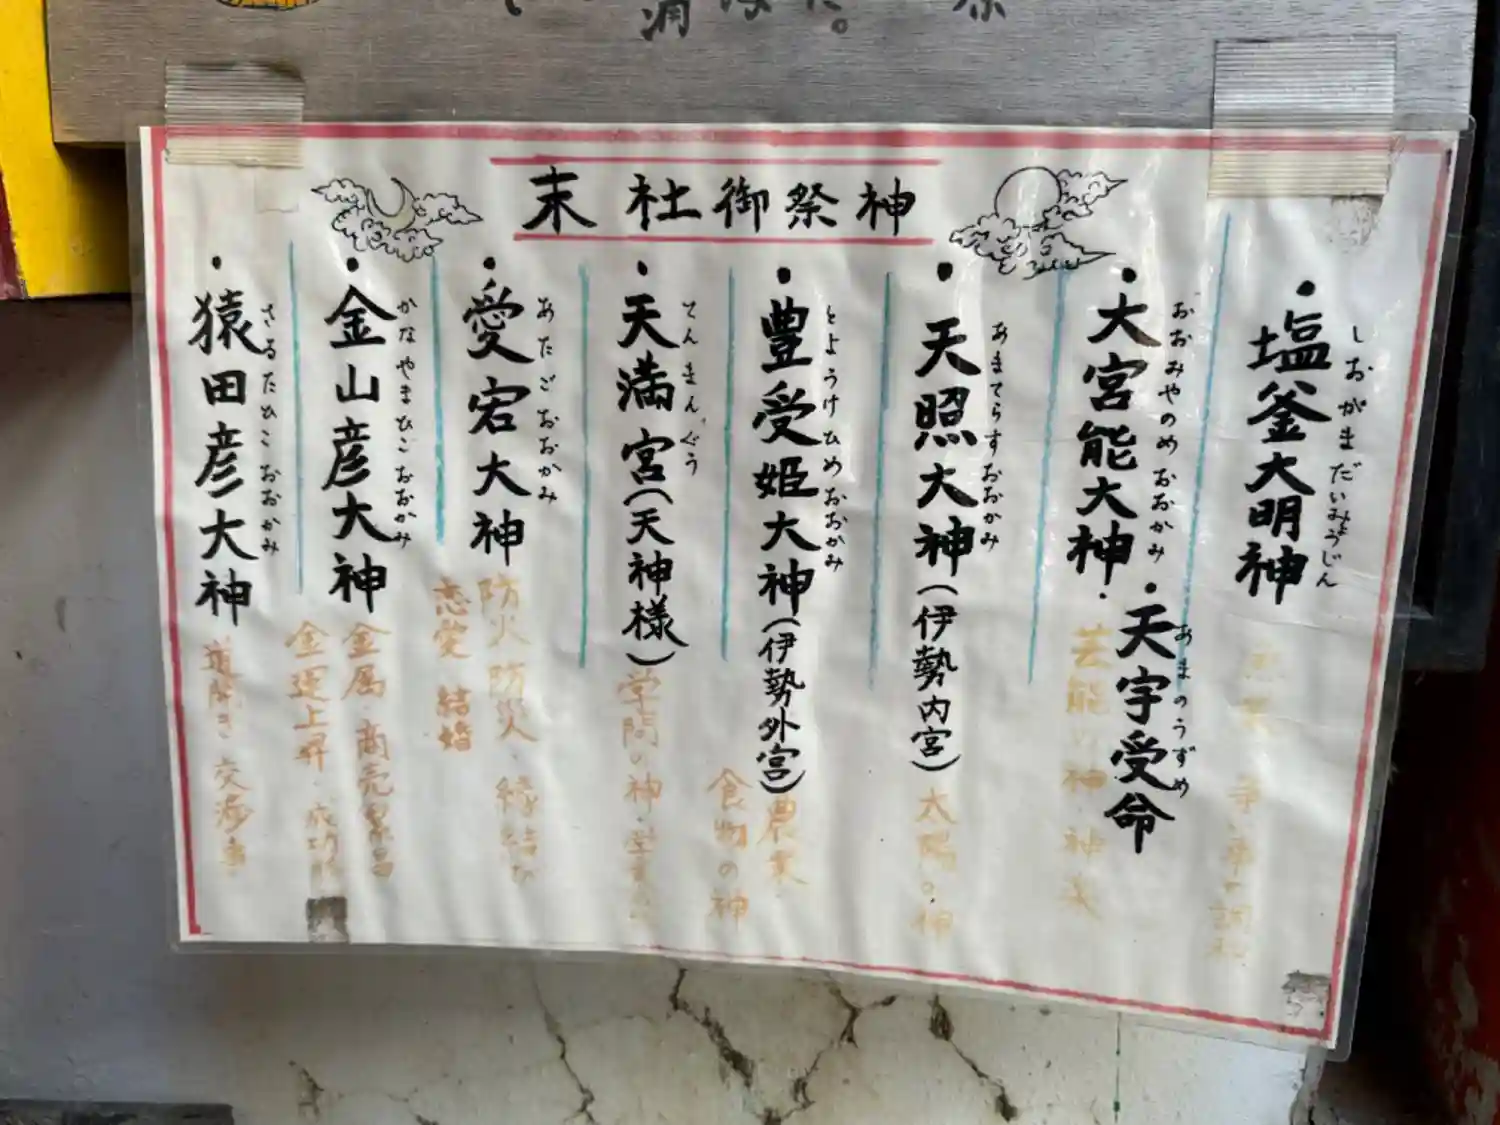 末社御祭神
・塩釜大明神
しおがまだいみょうじん
・大宮能大神
おおみやのめおおかみ
・天宇受命
あまのうずめ
芸能の神・神楽
・天照大神(伊勢内宮)
あまてらすおおかみ
太陽の神
・豊受姫大神(伊勢外宮)
とようけひめおおかみ
農業
食物の神
・天満宮(天神様)
てんまんぐう
学問の神・
・愛宕大神
あたごおおかみ
防火防災・縁結び
恋愛 結婚
・金山彦大神
かなやまひごおおかみ
金属・商売繁昌
金運上昇・成功
・猿田彦大神
さるたひこおおかみ
道開き・交通